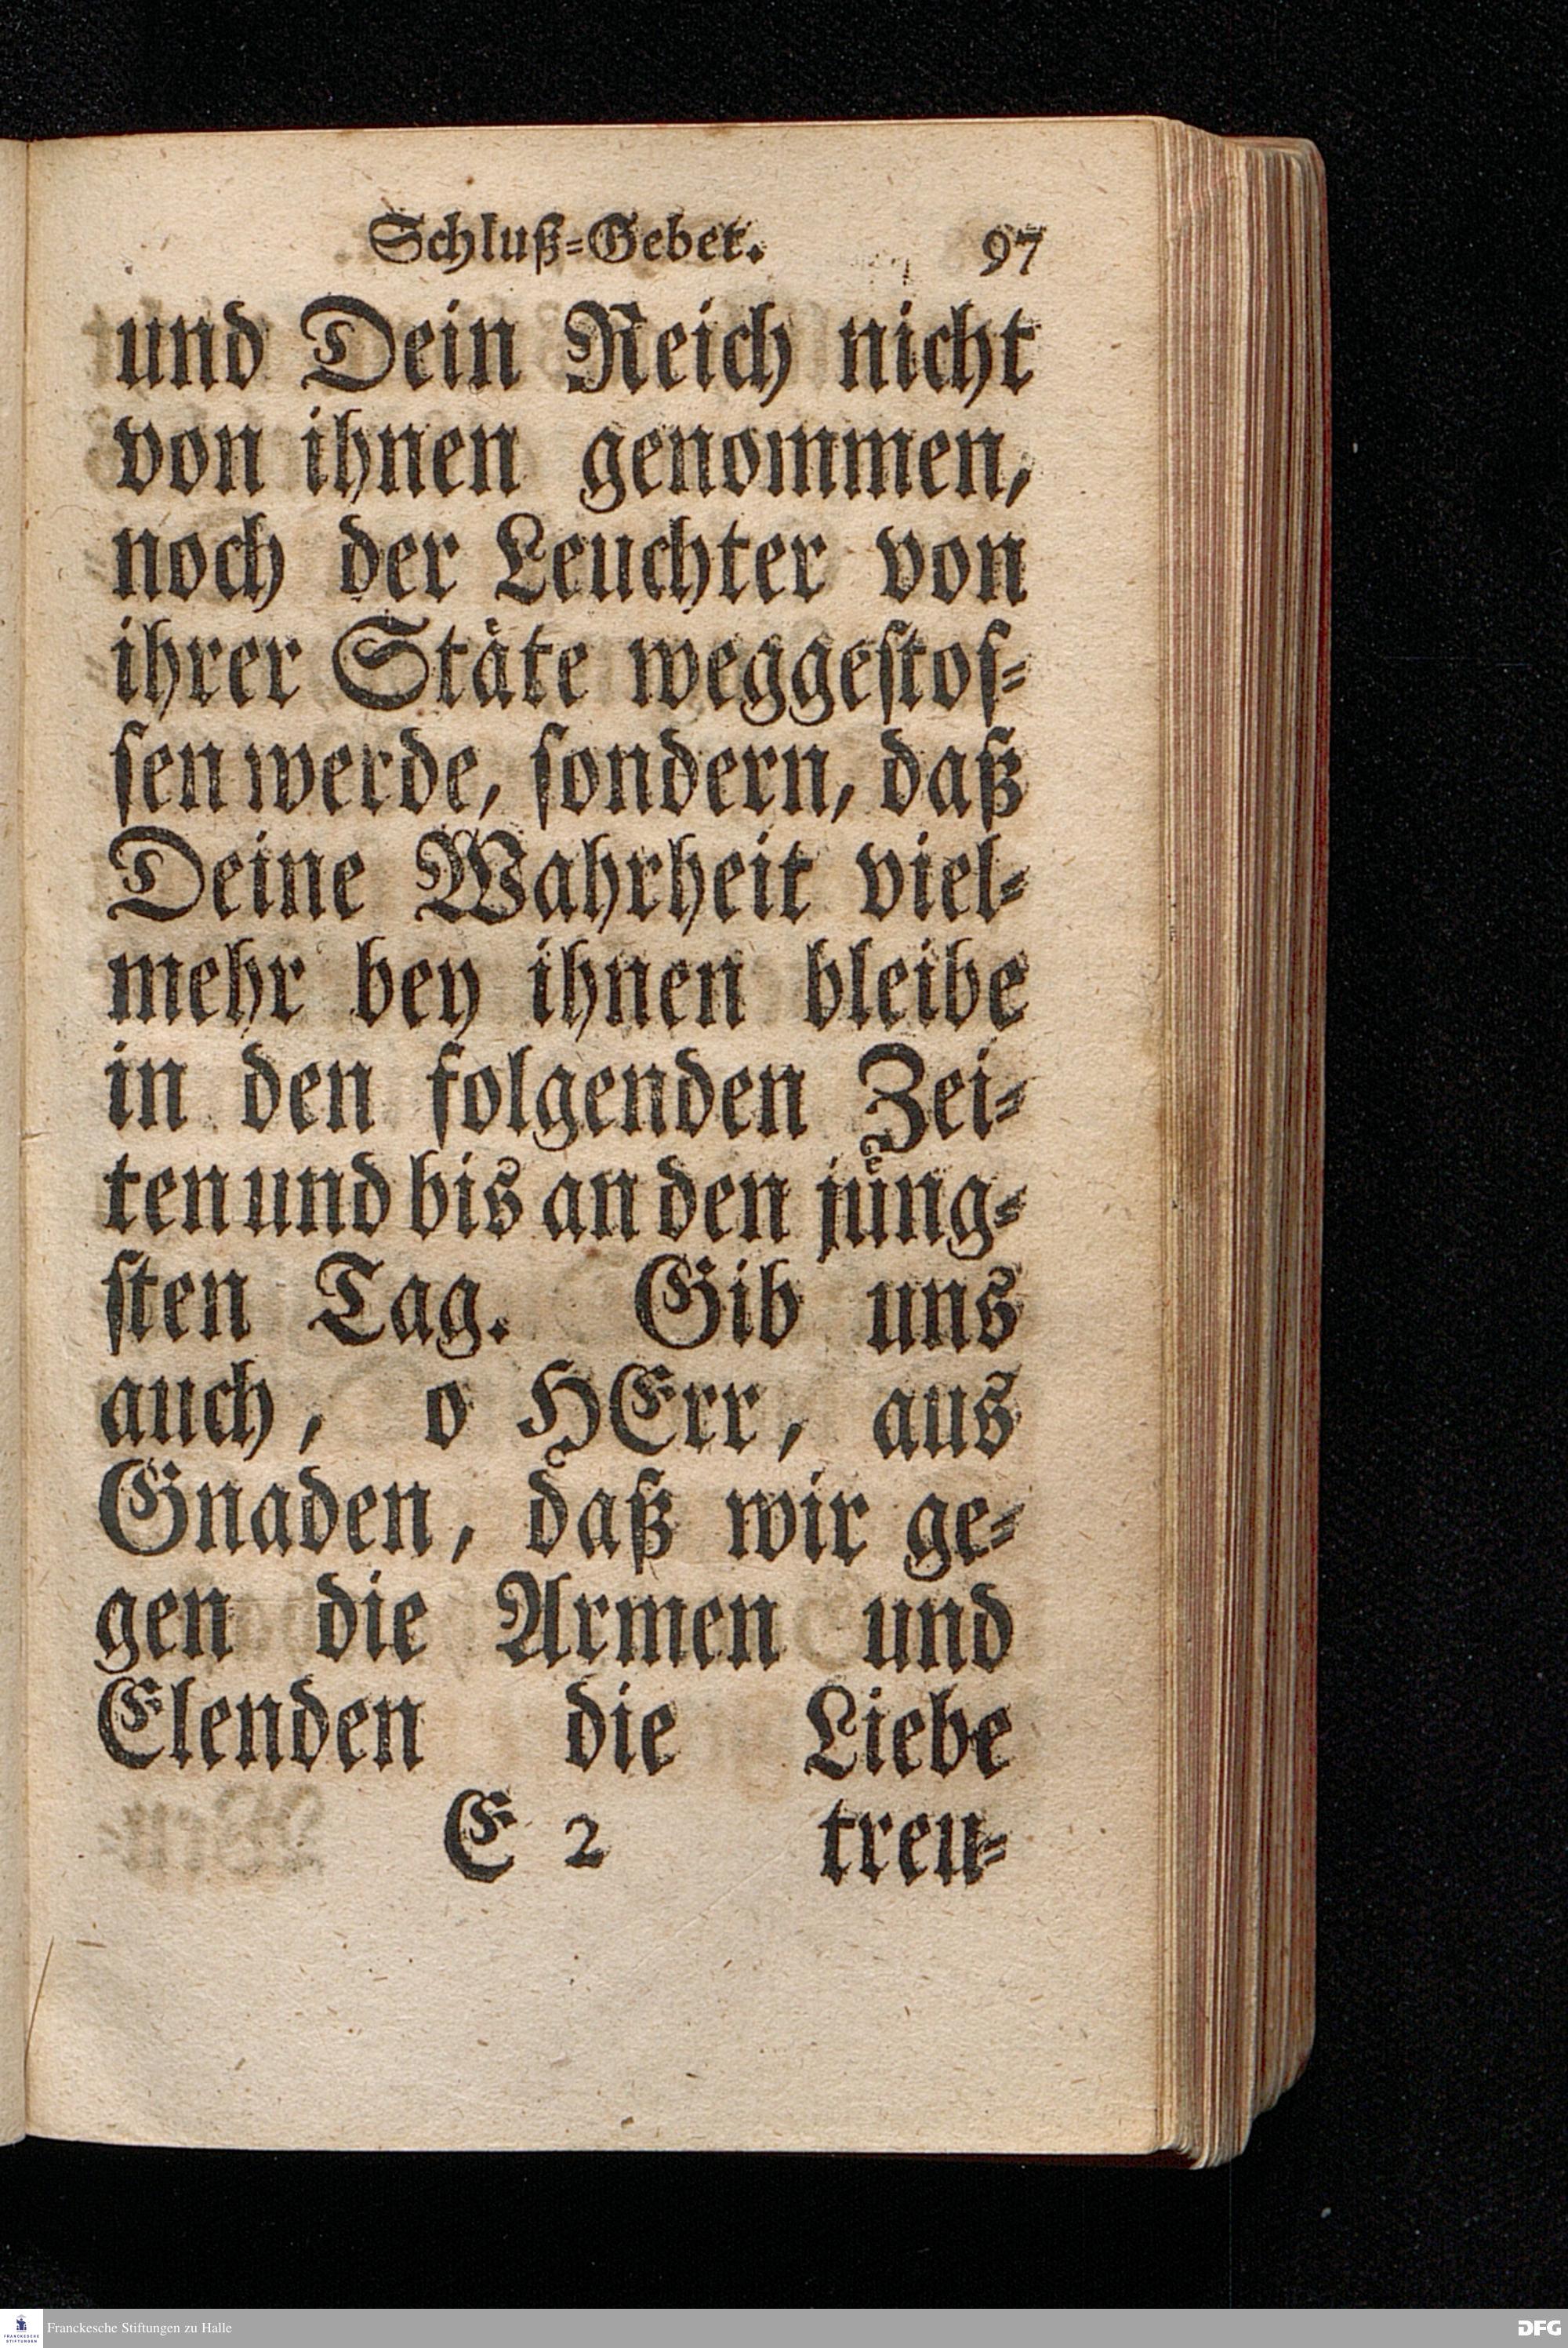 Schluß-Gebet. 97
und Dein Reich nicht
von ihnen genommen,
noch der Leuchter von
ihrer Stäte weggestos-
sen werde, sondern, daß
Deine Wahrheit viel-
mehr bey ihnen bleibe
in den folgenden Zei-
ten und bis an den jüng-
sten Tag. Gib uns
auch, o HErr, aus
Gnaden, daß wir ge-
gen die Armen und
Elenden die Liebe
E 2 treu-
Franckesche Stiftungen zu Halle
DFG